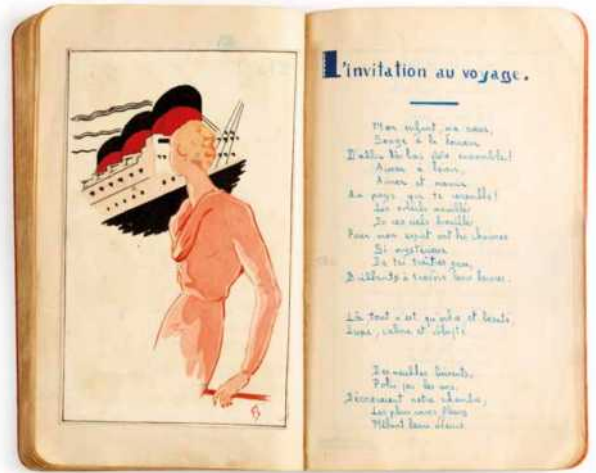 L'invitation au voyage.
Mon enfant, ma sœur,
Songe à la douceur
D'aller là-bas vivre ensemble!
Aimer à loisir,
Aimer et mourir
Au pays qui te ressemble!
Les soleils mouillés
De ces ciels brouillés
Pour mon esprit ont les charmes
Si mystérieux
De tes traîtres yeux,
Brillants à travers leurs larmes.
Là tout n'est qu'ordre et beauté,
Luxe, calme et volupté.
Des meubles luisants,
Polis par les ans,
Décoreraient notre chambre,
Les plus rares fleurs
Mêlant leurs odeurs